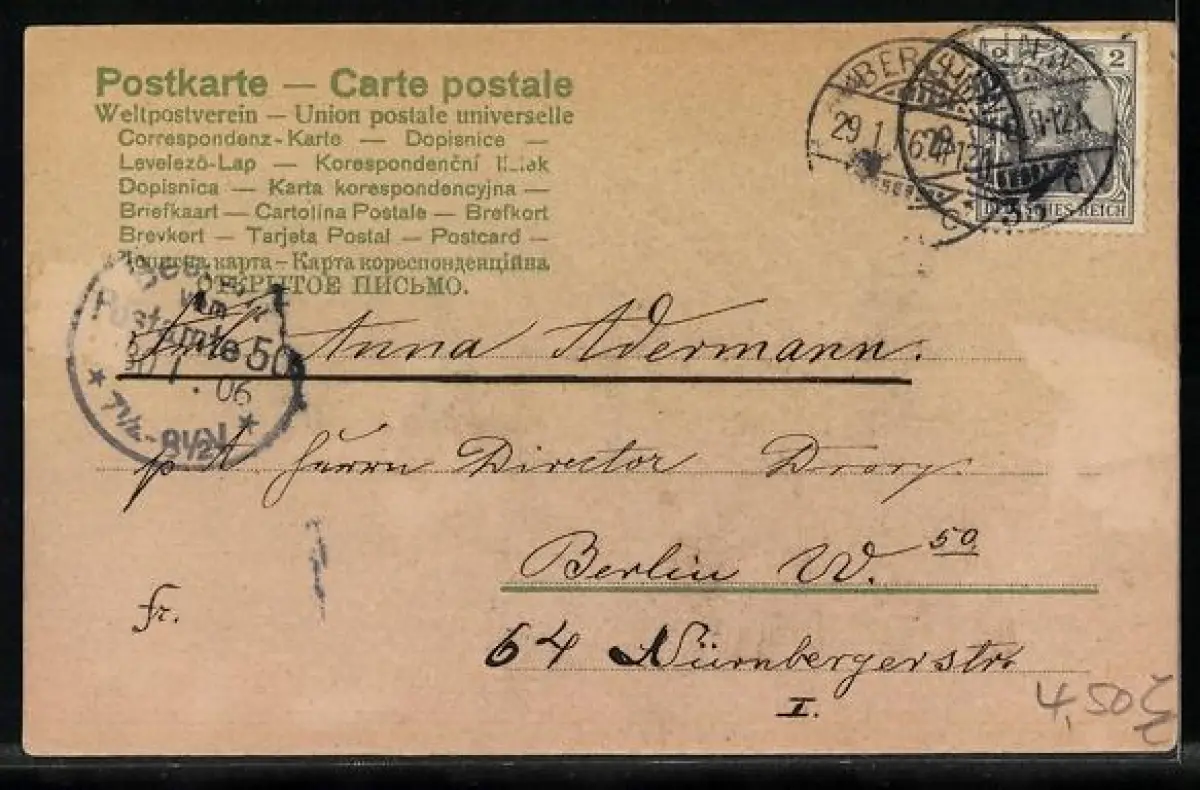 Postkarte — Carte postale
Weltpostverein — Union postale universelle
Correspondenz-Karte — Dopisnice —
Levelező-Lap — Korespondenční
Dopisnica — Karta korespondencyjna —
Briefkaart — Cartolina Postale — Brefkort
Brevkort — Tarjeta Postal — Postcard —
карта – Карта кореспонденційна
ОТКРЫТОЕ ПИСЬМО.
2 2
DEUTSCHES REICH
BERLIN
29 1
Postamte 50
06
Anna Adermann.
p A Herrn Director Drory.
Berlin W. 50.
Fr.
64 Nürnbergerstr.
I.
4,50